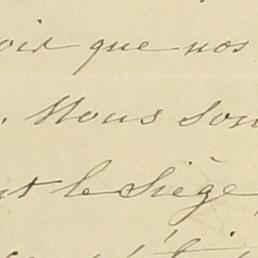 voir que nos
. Nous son
nt le Siège